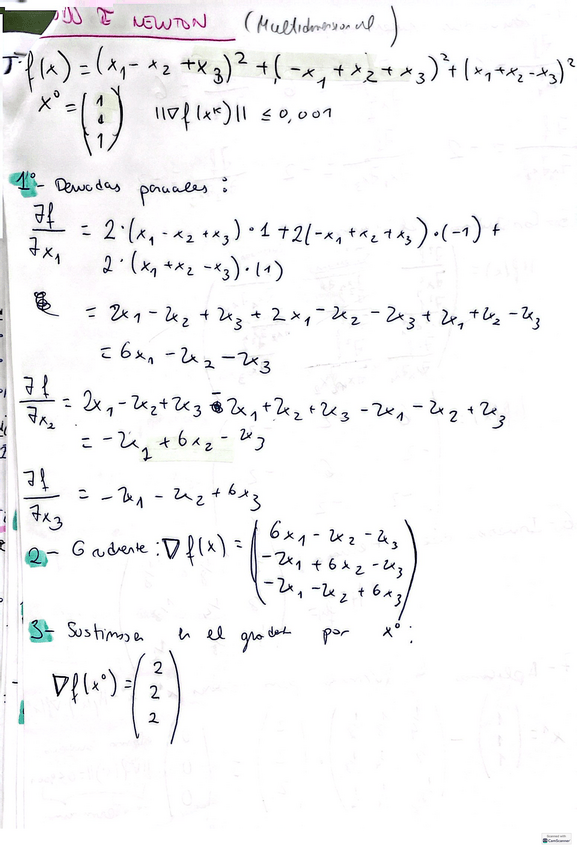 I NEWTON (Multidimensional)
f(x) = (x₁ - x₂ + x₃)² + (-x₁ + x₂ + x₃)² + (x₁ + x₂ - x₃)²
x⁰ = (1 1 1) ||∇f(xᵏ)|| ≤ 0,001
1º- Derivadas parciales :
∂f/∂x₁ = 2·(x₁ - x₂ + x₃)·1 + 2(-x₁ + x₂ + x₃)·(-1) +
2·(x₁ + x₂ - x₃)·(1)
= 2x₁ - 2x₂ + 2x₃ + 2x₁ - 2x₂ - 2x₃ + 2x₁ + 2x₂ - 2x₃
= 6x₁ - 2x₂ - 2x₃
∂f/∂x₂ = 2x₁ - 2x₂ + 2x₃ - 2x₁ + 2x₂ + 2x₃ - 2x₁ - 2x₂ + 2x₃
= -2x₁ + 6x₂ - 2x₃
∂f/∂x₃ = -2x₁ - 2x₂ + 6x₃
2- Gradiente : ∇f(x) = (6x₁ - 2x₂ - 2x₃
-2x₁ + 6x₂ - 2x₃
-2x₁ - 2x₂ + 6x₃)
3- en el por x⁰ :
∇f(x⁰) = (2 2 2)
CamScanner